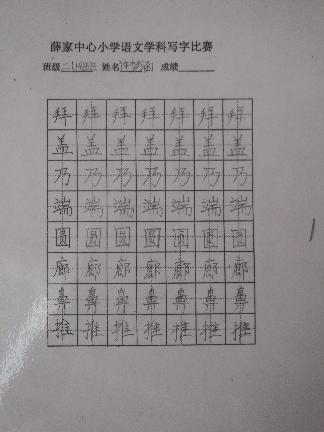 薛家中心小学语文学科写字比赛
班级 姓名 成绩
拜 拜 拜 拜 拜 拜 拜
盖 盖 盖 盖 盖 盖 盖
巧 巧 巧 巧 巧 巧 巧
端 端 端 端 端 端 端
圆 圆 圆 圆 圆 圆 圆
廊 廊 廊 廊 廊 廊 廊
鼻 鼻 鼻 鼻 鼻 鼻 鼻
推 推 推 推 推 推 推